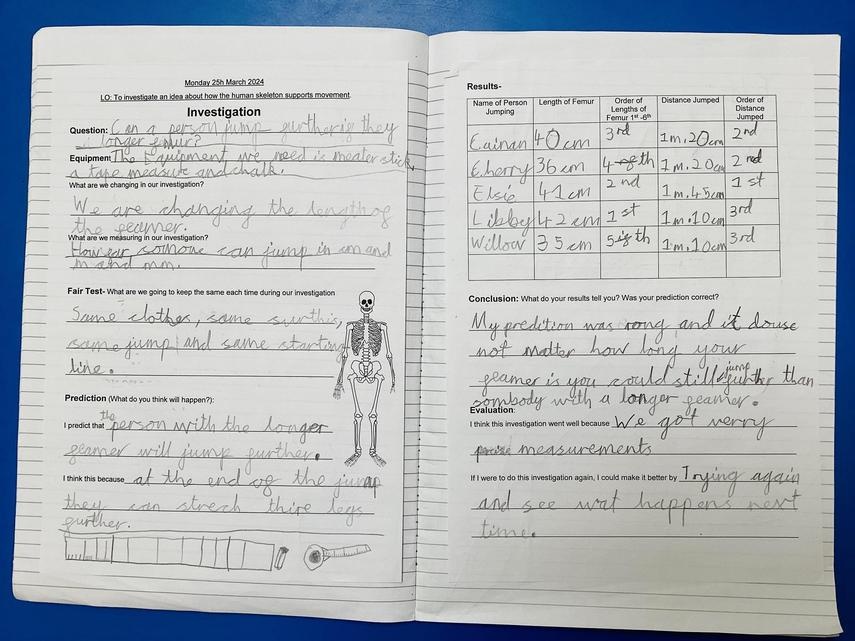 Monday 25h March 2024
LO: To investigate an idea about how the human skeleton supports movement.
Investigation
Question: Can a person jump gurther ig they
a longer femur?
Equipment The Equipment we need is meater stick
a tape measure and chalk.
What are we changing in our investigation?
We are changing the length og
the geamer.
What are we measuring in our investigation?
How gar somone can jump in cm and
m and mm.
Fair Test- What are we going to keep the same each time during our investigation
Same clothes, same surthis,
same jump and same starting
line.
Prediction (What do you think will happen?):
I predict that the person with the longer
geamer will jump gurther.
I think this because at the end og the jump
they can strech thire legs
gurther.
Results-
Name of Person Jumping Length of Femur Order of Lengths of Femur 1st -6th Distance Jumped Order of Distance Jumped
Cainan 40cm 3rd 1m.20cm 2nd
Eherry 36cm 4th 1m.20cm 2nd
Elsie 41cm 2nd 1m.45cm 1st
Libby 42cm 1st 1m.10cm 3rd
Willow 35cm 5th 1m.10cm 3rd
Conclusion: What do your results tell you? Was your prediction correct?
My predition was rong and it douse
not matter how long your
geamer is you could still jump gurther than
sombody with a longer geamer.
Evaluation:
I think this investigation went well because We got verry
measurements
If I were to do this investigation again, I could make it better by Trying again
and see wat happens next
time.